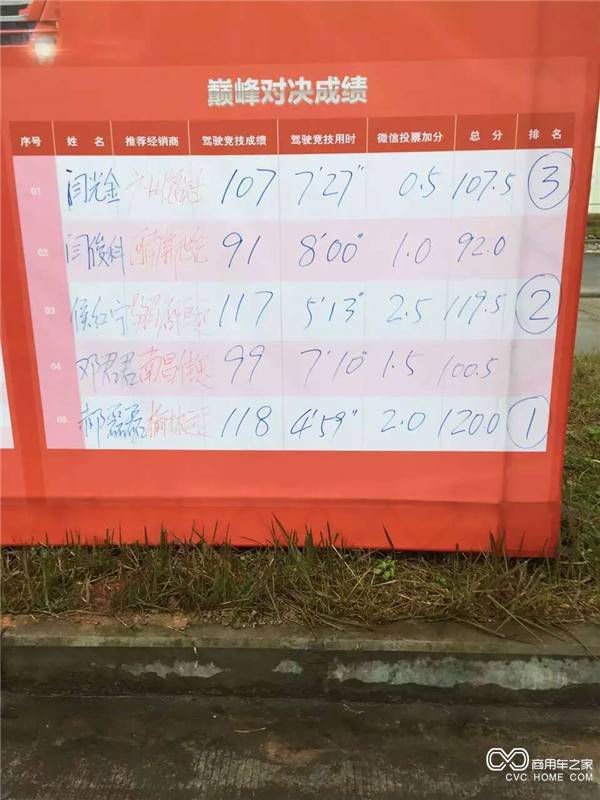 巅峰对决成绩
序号 姓名 推荐经销商 驾驶竞技成绩 驾驶竞技用时 微信投票加分 总分 排名
01 闫光金 107 7'27" 0.5 107.5 ③
02 闫俊科 91 8'00" 1.0 92.0
03 侯红宁 117 5'13" 2.5 119.5 ②
04 邓君君 南昌 99 7'10" 1.5 100.5
05 郝磊磊 榆林 118 4'59" 2.0 120.0 ①
商用车之家
CVC HOME.COM